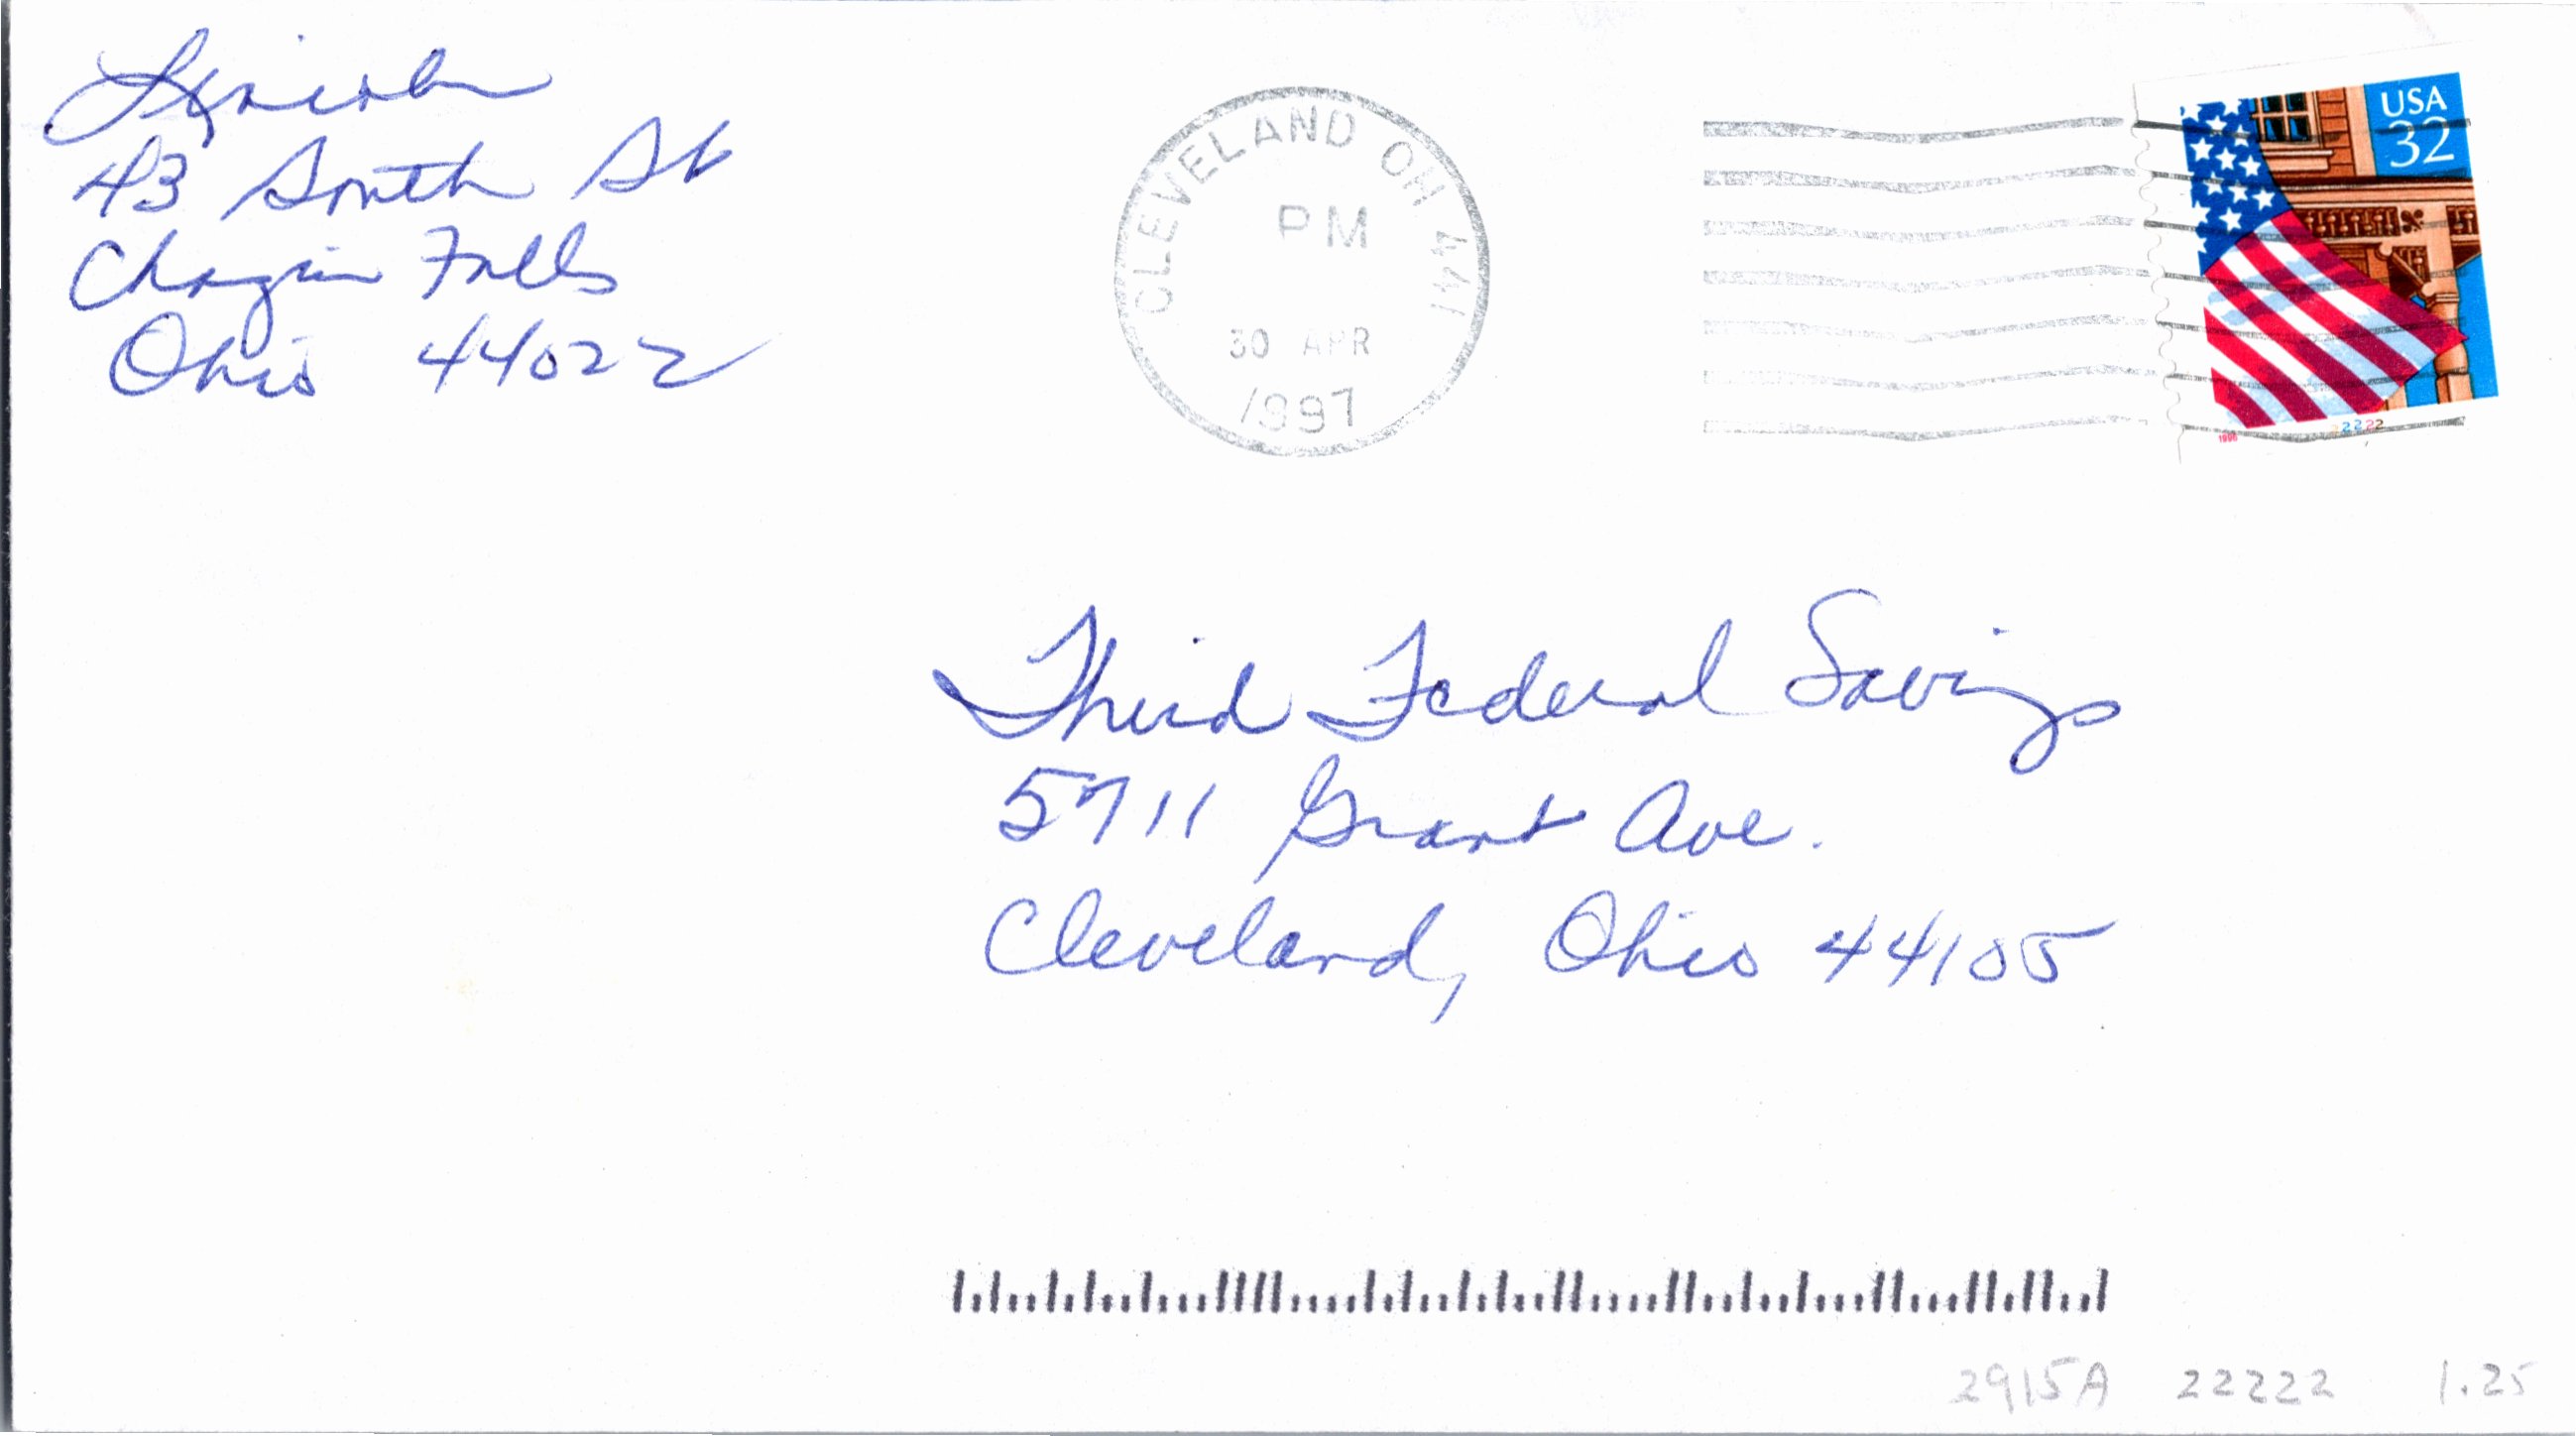 Lincoln
43 South St
Chagrin Falls
Ohio 44022
CLEVELAND OH 441
PM
30 APR
1997
USA
32
1996
22222
Third Federal Savings
5711 Grant Ave.
Cleveland, Ohio 44105
2915A 22222 1.25